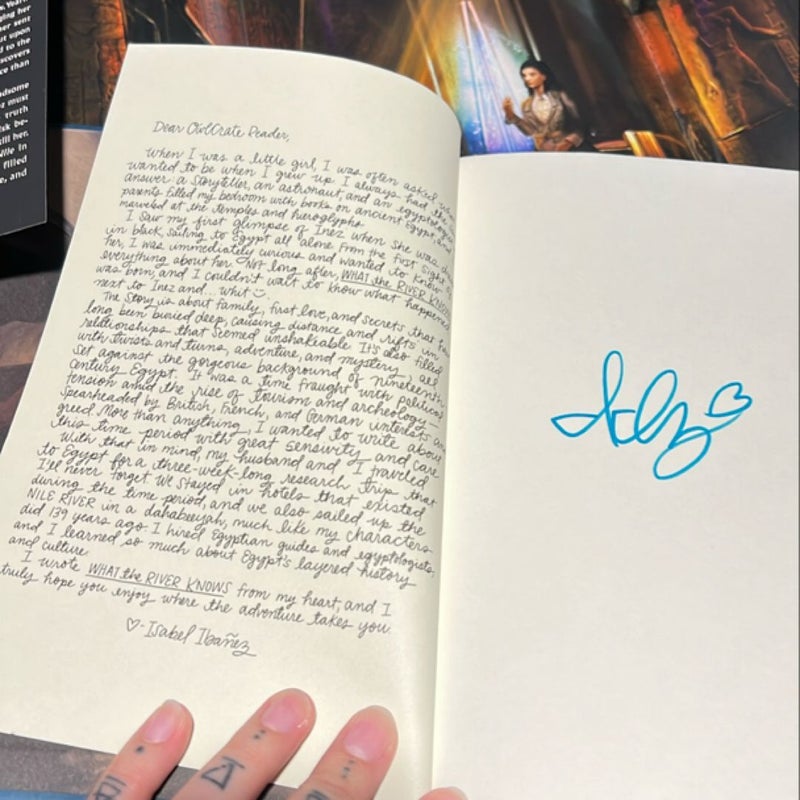 Year
ging her
er sent
ut upon
d to the
scovers
ce than
ndsome
z must
truth
isk be-
kill her.
Nile in
filled
e, and
Dear OwlCrate Reader,
When I was a little girl, I was often asked what
wanted to be when I grew up. I always had the
answer: a storyteller, an astronaut, and an egyptologist
parents filled my bedroom with books on ancient Egypt, and
marveled at the temples and hieroglyphs
I saw my first glimpse of Inez when she was
in black, sailing to Egypt all alone. From the first sight
her, I was immediately curious and wanted to know
everything about her. Not long after, WHAT the RIVER KNOWS
was born, and I couldn't wait to know what happened
next to Inez and... whit
The story is about family, first love, and secrets that
long been buried deep, causing distance and rifts in
relationships that seemed unshakeable. It's also filled
with twists and turns, adventure, and mystery, all
set against the gorgeous background of nineteenth
century Egypt. It was a time fraught with political
tension amid the rise of tourism and archeology-
spearheaded by British, French, and German interests
greed. More than anything, I wanted to write about
this time period with great sensivity and care
With that in mind, my husband and I traveled
to Egypt for a three-week-long research trip that
I'll never forget. We stayed in hotels that existed
during the time period, and we also sailed up the
NILE RIVER in a dahabeeyah, much like my characters
did 139 years ago. I hired Egyptian guides and egyptologists,
and I learned so much about Egypt's layered history
and culture.
I wrote WHAT the RIVER KNOWS from my heart, and I
truly hope you enjoy where the adventure takes you.
♡-Isabel Ibañez